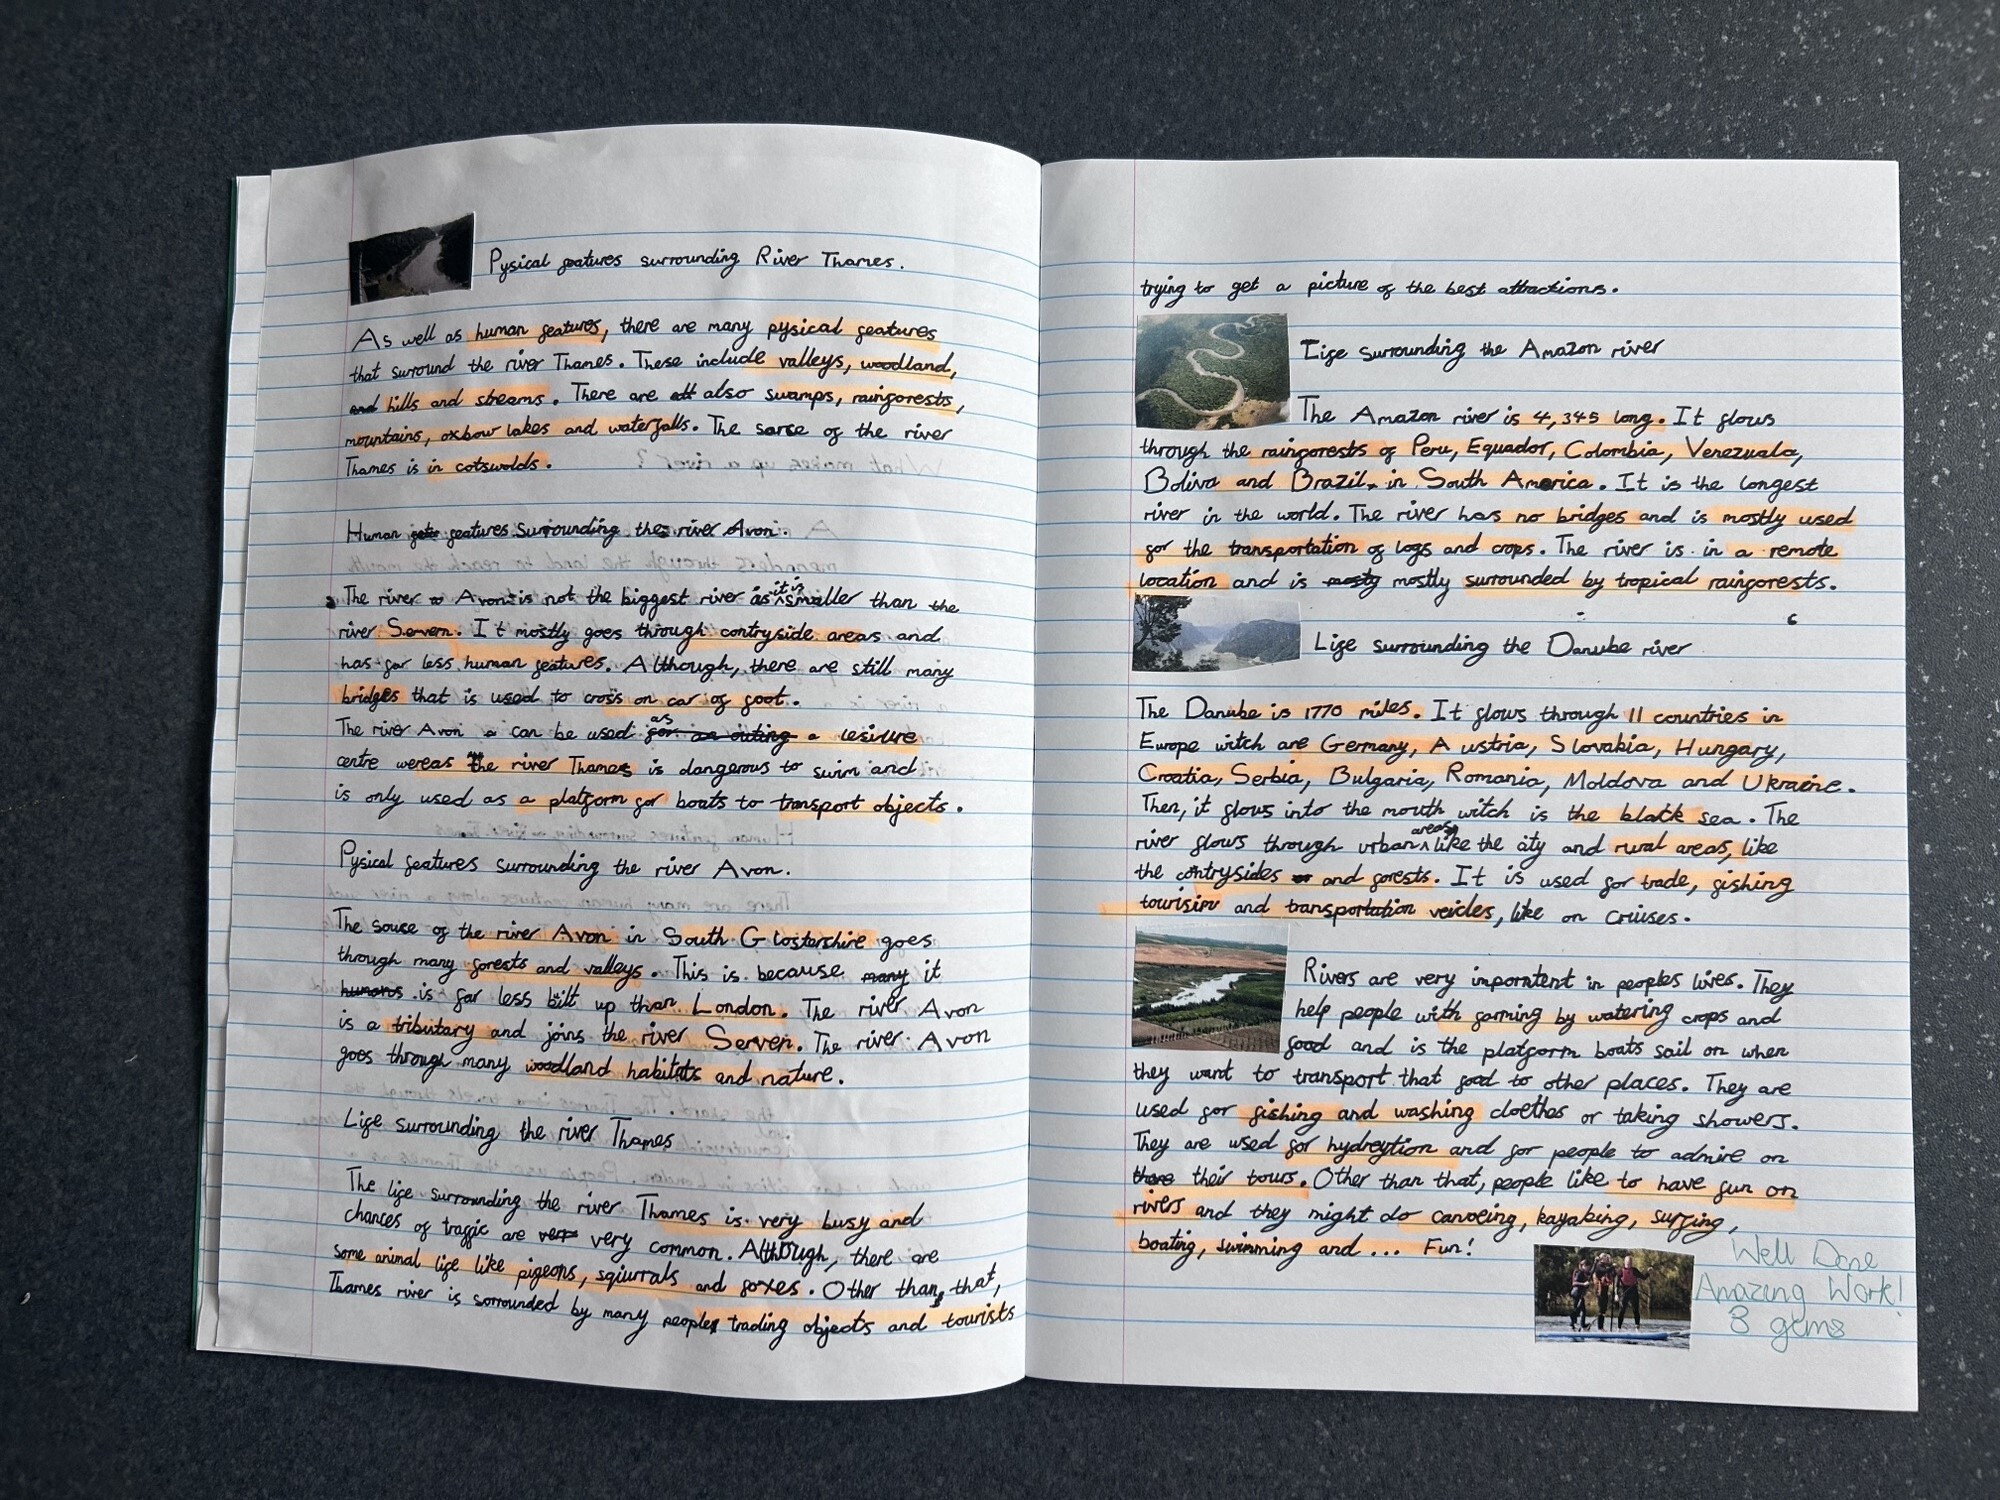 Pysical features surrounding River Thames.
As well as human features, there are many pysical features
that surround the river Thames. These include valleys, woodland,
and hills and streams. There are all also swamps, rainforests,
mountains, oxbow lakes and waterfalls. The sorce of the river
Thames is in cotswolds.
Human features surrounding the river Avon.
The river Avon is not the biggest river as it is smaller than the
river Serven. It mostly goes through contryside areas and
has far less human features. Although, there are still many
bridges that is used to cross on car of foot.
The river Avon can be used for an outing as a lesiure
centre wereas the river Thames is dangerous to swim and
is only used as a platform for boats to transport objects.
Pysical features surrounding the river Avon.
The souse of the river Avon in South Glostershire goes
through many forests and valleys. This is because many it
humans is far less bilt up than London. The river Avon
is a tributary and joins the river Serven. The river Avon
goes through many woodland habitats and nature.
Life surrounding the river Thames
The life surrounding the river Thames is very busy and
chances of traffic are very very common. Although, there are
some animal life like pigeons, sqiurrals and foxes. Other than that,
Thames river is sorrounded by many people trading objects and tourists
trying to get a picture of the best attractions.
Life surrounding the Amazon river
The Amazon river is 4,345 long. It flows
through the rainforests of Peru, Equador, Colombia, Venezuala,
Boliva and Brazil, in South America. It is the longest
river in the world. The river has no bridges and is mostly used
for the transportation of logs and crops. The river is in a remote
location and is mosty mostly surrounded by tropical rainforests.
Life surrounding the Danube river
The Danube is 1770 miles. It flows through 11 countries in
Europe witch are Germany, Austria, Slovakia, Hungary,
Croatia, Serbia, Bulgaria, Romania, Moldova and Ukraine.
Then, it flows into the mouth witch is the black sea. The
river flows through urban areas like the city and rural areas, like
the contrysides and forests. It is used for trade, fishing
tourisim and transportation veicles, like on Cruises.
Rivers are very imporntent in peoples lives. They
help people with farming by watering crops and
food and is the platform boats sail on when
they want to transport that food to other places. They are
used for fishing and washing cloethes or taking showers.
They are used for hydreytion and for people to admire on
there their tours. Other than that, people like to have fun on
rivers and they might do canoeing, kayaking, surfing,
boating, swimming and... Fun!
Well Done
Amazing Work!
3 gems